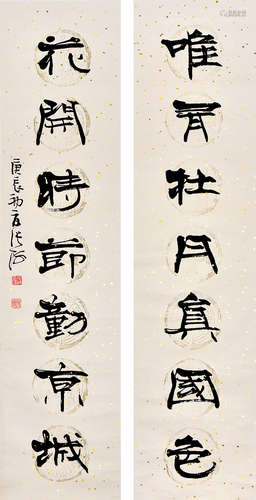 唯有牡丹真國色
花開時節動京城
庚辰初夏张海